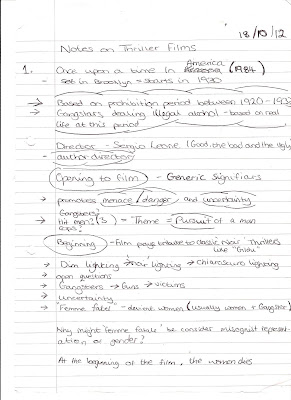 18/10/12
Notes on Thriller Films
1. Once upon a time in America (1984)
- set in Brooklyn - starts in 1930
→ Based on prohibition period between 1920 - 193
→ Gangstars, dealing illegal alcohol - based on real
life at this period
Director - Sergio Leone (Good, the bad and the Ugly)
- author director
Opening to film - Generic Signifiers
→ promotes menace / danger and uncertainty
Gangsters?
→ Hit men? (3) - Theme = Pursuit of a man
cops?
Beginning - Film pays tribute to classic Noir Thrillers
like "Gilda"
→ Dim lighting → noir lighting → Chiaroscuro lighting
→ open questions
→ Gangsters → Guns → victims
→ uncertainty
→ "Femme fatal" - devient women (usually women + Gangster)
Why might 'femme fatale' be consider misogynist represent-
ation of gender?
At the beginning of the film, the women dies